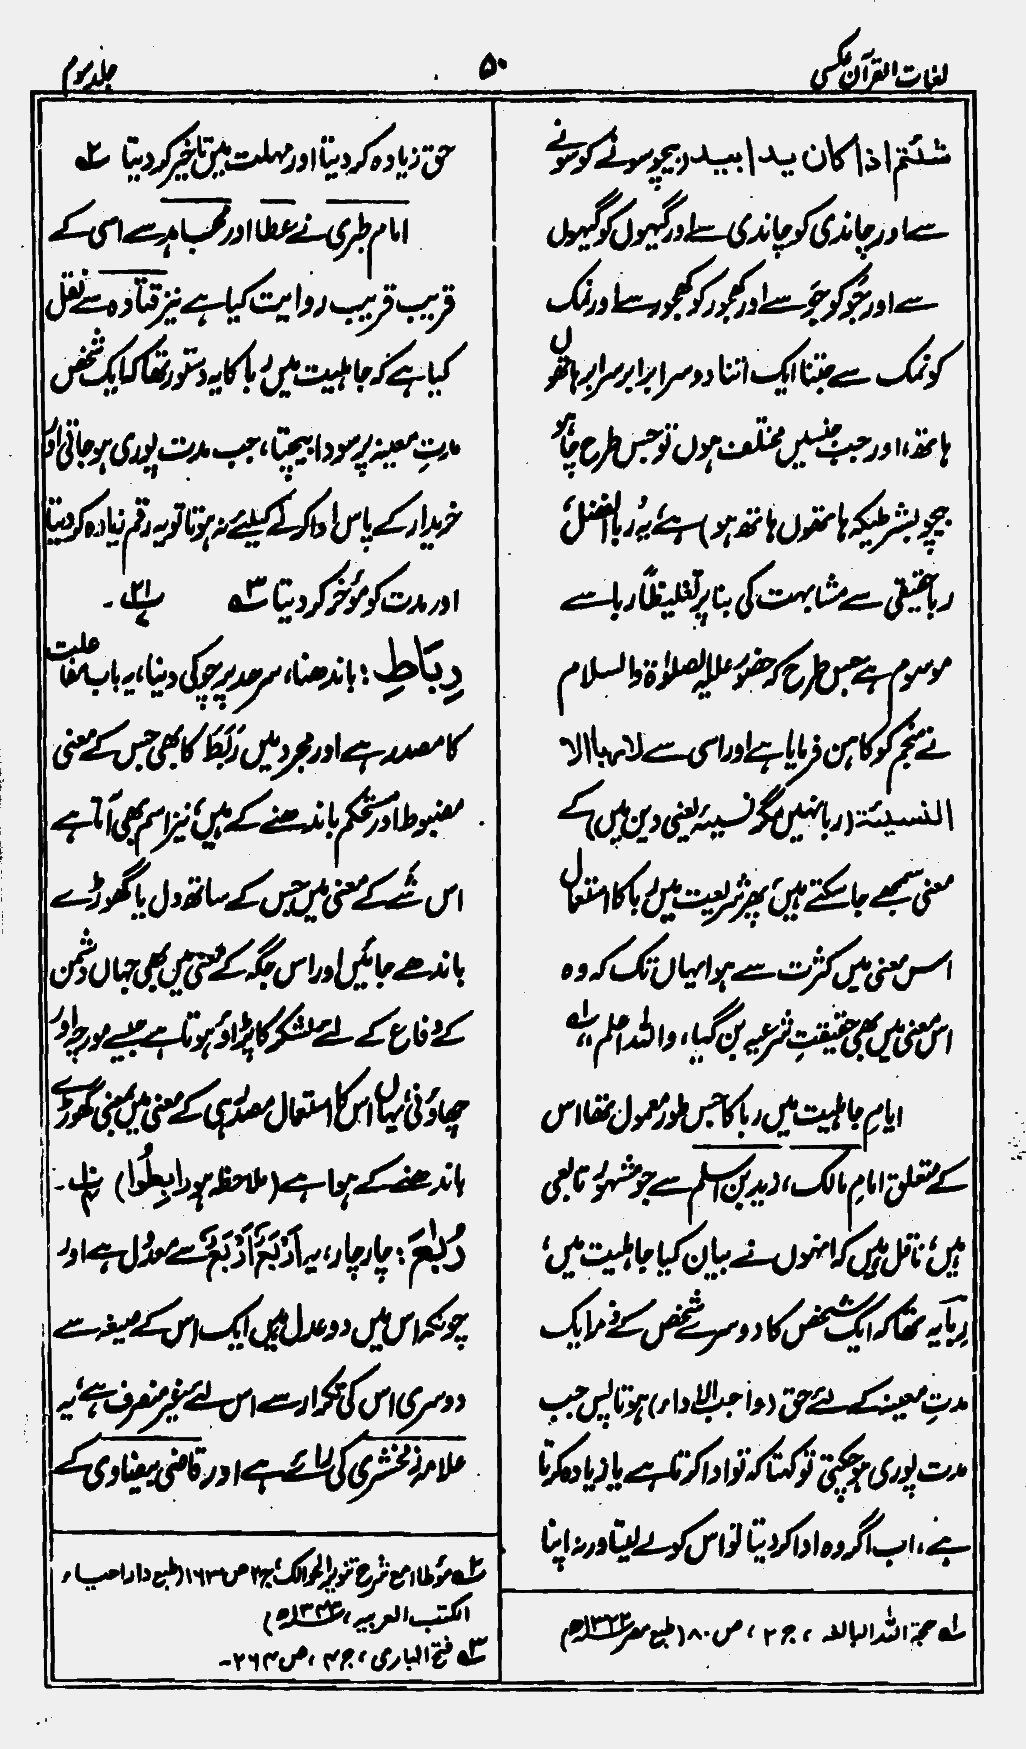 لغات القرآن عکسی
۵۰
جلد سوم
شئتم اذا کان یدا بید (بیچو سونے کو سونے
سے اور چاندی کو چاندی سے اور گیہوں کو گیہوں
سے اور جَو کو جَو سے اور کھجور کو کھجور سے اور نمک
کو نمک سے جتنا ایک اتنا دوسرا برابر سرابر ہاتھوں
ہاتھ، اور جب جنسیں مختلف ہوں تو جس طرح چاہو
بیچو بشرطیکہ ہاتھوں ہاتھ ہو) ہے، یہ ربا الفضل،
ربا حقیقی سے مشابہت کی بنا پر تغلیظاً ربا سے
موسوم ہے جس طرح کہ حضور علیہ الصلوٰۃ والسلام
نے منجم کو کاہن فرمایا ہے اور اسی سے لا ربا الا
النسیئة (ربا نہیں مگر نسیئہ یعنی دین میں) کے
معنی سمجھے جا سکتے ہیں، پھر شریعت میں ربا کا استعمال
اس معنی میں کثرت سے ہوا یہاں تک کہ وہ
اس معنی میں بھی حقیقتِ شرعیہ بن گیا، واللہ اعلم، لہ
ایامِ جاہلیت میں ربا کا جس طور معمول تھا اس
کے متعلق امام مالک، زید بن اسلم سے جو مشہور تابعی
ہیں، ناقل ہیں کہ انہوں نے بیان کیا جاہلیت میں،
رِبَا یہ تھا کہ ایک شخص کا دوسرے شخص کے ذمہ ایک
مدتِ معینہ کے لئے حق (واجب الاداء) ہوتا پس جب
مدت پوری ہو چکتی تو کہتا کہ تو ادا کرتا ہے یا زیادہ کرتا
ہے، اب اگر وہ ادا کر دیتا تو اس کو لے لیتا ورنہ اپنا
لہ حجۃ اللہ البالغہ، ج ۲، ص ۸۰ (طبع مصر ۱۳۲۲ھ)
حق زیادہ کر دیتا اور مہلت میں تاخیر کر دیتا ۲ہ
امام طبری نے عطا اور مجاہد سے اسی کے
قریب قریب روایت کیا ہے نیز قتادہ سے نقل
کیا ہے کہ جاہلیت میں ربا کا یہ دستور تھا کہ ایک شخص
مدتِ معینہ پر سودا بیچتا، جب مدت پوری ہو جاتی اور
خریدار کے پاس ادا کرنے کیلئے نہ ہوتا تو یہ رقم زیادہ کر دیتا
اور مدت کو مؤخر کر دیتا ۳ہ
رِبَاطِ: باندھنا، سرحد پر چوکی دینا، یہ باب مفاعلت
کا مصدر ہے اور مجرد میں رَبَطَ کا بھی جس کے معنی
مضبوط اور مستحکم باندھنے کے ہیں، نیز اسم بھی آتا ہے
اس شے کے معنی میں جس کے ساتھ دل یا گھوڑے
باندھے جائیں اور اس جگہ کے معنی میں بھی جہاں دشمن
کے دفاع کے لئے لشکر کا پڑاؤ ہوتا ہے جیسے مورچہ اور
چھاؤنی، یہاں اس کا استعمال مصدر ہی کے معنی میں یعنی گھوڑے
باندھنے کے ہوا ہے (ملاحظہ ہو رابِطُوا)
رُبٰعَ: چار چار، یہ اَرْبَعٌ اَرْبَعٌ سے معدول ہے اور
چونکہ اس میں دو عدل ہیں ایک اس کے صیغہ سے
دوسری اس کی تکرار سے اس لئے غیر منصرف ہے، یہ
علامہ زمخشری کی رائے ہے اور قاضی بیضاوی کے
۲ہ مؤطا مع شرح تنویر الحوالک، ج ۲ ص ۱۶۳ (طبع دار احیاء
الکتب العربیہ، ۱۳۴۳ھ)
۳ہ فتح الباری، ج ۴، ص ۲۶۴۔